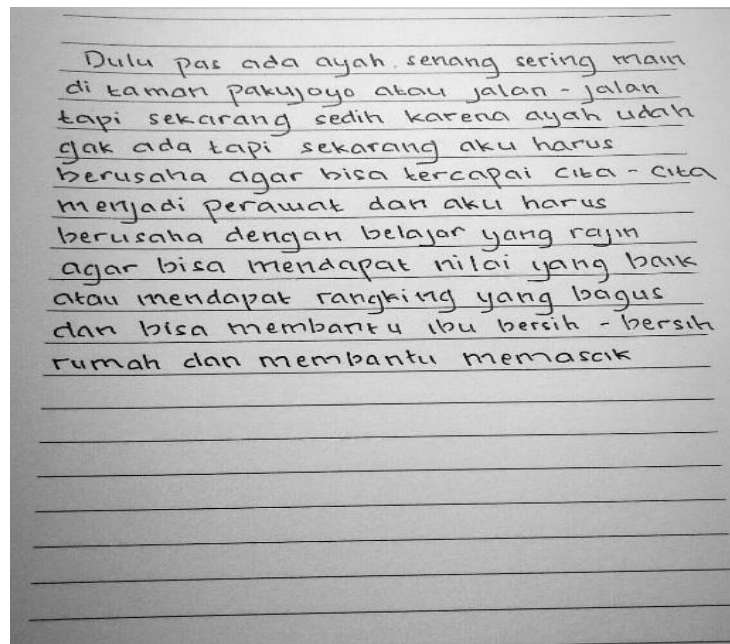 Dulu pas ada ayah senang sering main
di taman pakujoyo atau jalan - jalan
tapi sekarang sedih karena ayah udah
gak ada tapi sekarang aku harus
berusaha agar bisa tercapai cita - cita
menjadi perawat dan aku harus
berusaha dengan belajar yang rajin
agar bisa mendapat nilai yang baik
atau mendapat rangking yang bagus
dan bisa membantu ibu bersih - bersih
rumah dan membantu memasak